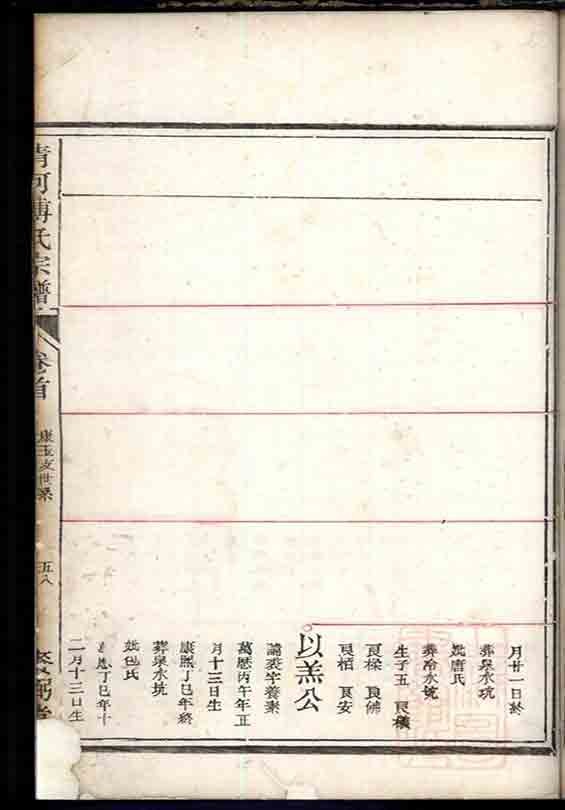 月廿一日終
葬泉水坑
妣唐氏
葬冷水坑
生子五 良儀
良樑 良佛
良栢 良安
以羔公
諱裘字養素
萬歷丙午年正
月十三日生
康熙丁巳年終
葬泉水坑
妣包氏
丁巳年十
二月十三日生
清河傅氏宗譜
卷首
康五支世系
五八